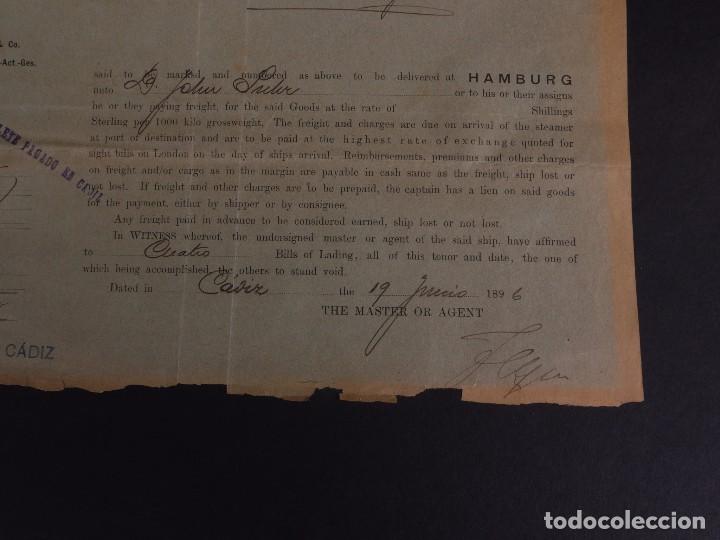 & Co.
-Act.-Ges.
said to be marked and numbered as above to be delivered at HAMBURG
unto D. John or to his or their assigns
he or they paying freight, for the said Goods at the rate of Shillings
Sterling per 1000 kilo grossweight. The freight and charges are due on arrival of the steamer
at port of destination and are to be paid at the highest rate of exchange quoted for
sight bills on London on the day of ships arrival. Reimbursements, premiums and other charges
on freight and/or cargo as in the margin are payable in cash same as the freight, ship lost or
not lost. If freight and other charges are to be prepaid, the captain has a lien on said goods
for the payment, either by shipper or by consignee.
Any freight paid in advance to be considered earned, ship lost or not lost.
In WITNESS whereof, the undersigned master or agent of the said ship, have affirmed
to Cuatro Bills of Lading, all of this tenor and date, the one of
which being accomplished, the others to stand void.
Dated in Cádiz the 19 Junio 1896
THE MASTER OR AGENT
LETE PAGADO EN CADIZ
CÁDIZ
todocoleccion.net